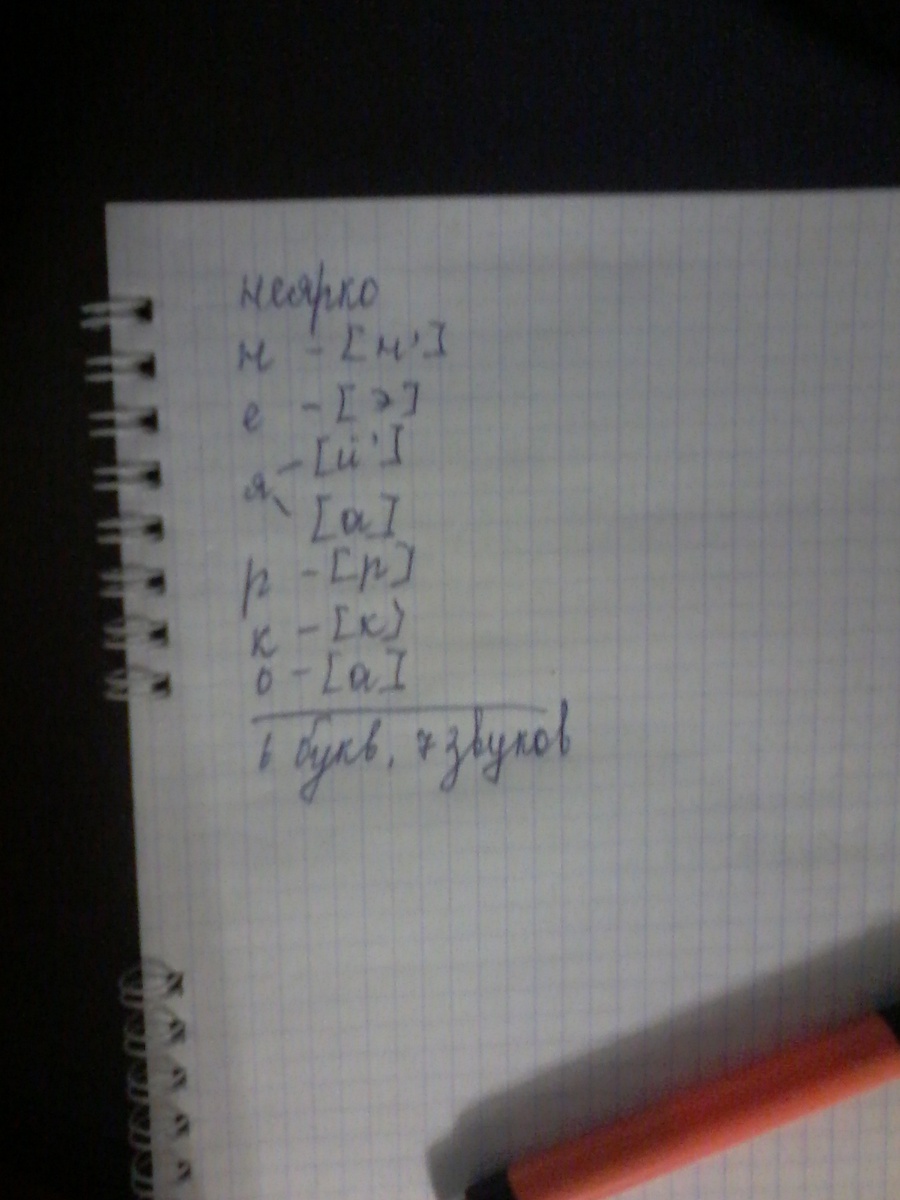 неярко
н - [н']
е - [э]
я - [й']
[а]
р - [р]
к - [к]
о - [а]
6 букв, 7 звуков